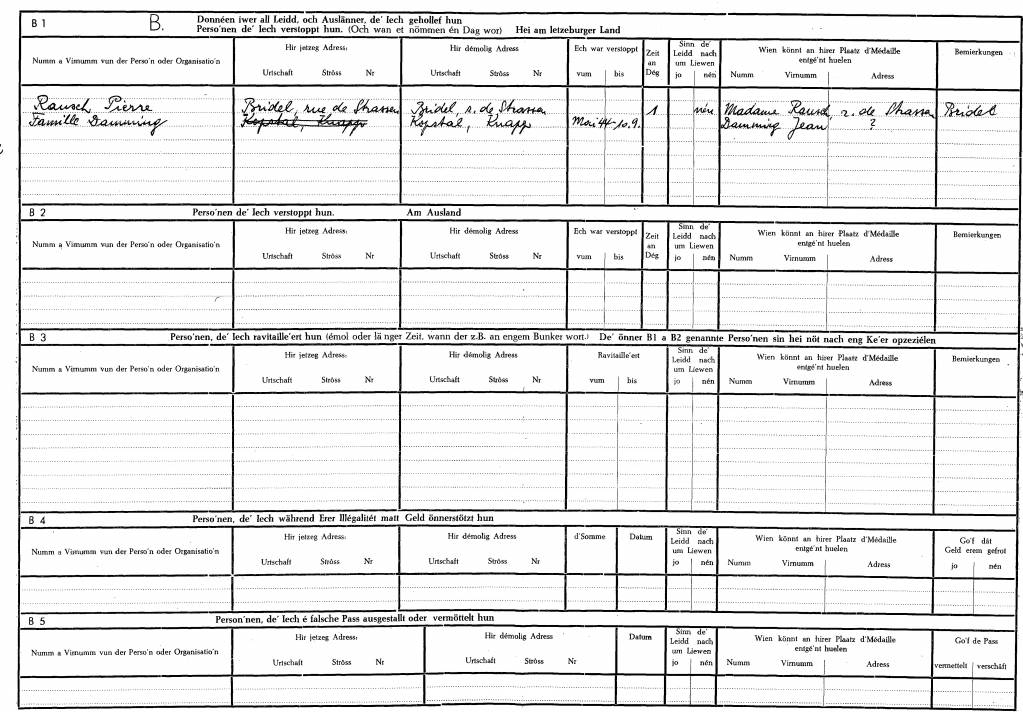 B 1 B. Donnéen iwer all Leidd, och Auslänner, de' Iech gehollef hun
Perso'nen de' Iech verstoppt hun. (Och wan et nömmen én Dag wor) Hei am letzeburger Land
Numm a Virnumm vun der Perso'n oder Organisatio'n
Hir jetzeg Adress:
Urtschaft Ströss Nr
Hir démolig Adress
Urtschaft Ströss Nr
Ech war verstoppt
vum bis
Zeit
an
Dég
Sinn de'
Leidd nach
um Liewen
jo nén
Wien könnt an hirer Plaatz d'Médaille
entgé'nt huelen
Numm Virnumm Adress
Bemierkungen
Rausch Pierre Bridel, rue de Strassen Bridel, r. de Strassen 1 nén Madame Rausch, r. de Strassen Bridel
Famille Damming Kopstal, Knapp Kopstal, Knapp Mai 44-10.9. Damming Jean ?
B 2 Perso'nen de' Iech verstoppt hun. Am Ausland
Numm a Virnumm vun der Perso'n oder Organisatio'n
Hir jetzeg Adress:
Urtschaft Ströss Nr
Hir démolig Adress
Urtschaft Ströss Nr
Ech war verstoppt
vum bis
Zeit
an
Dég
Sinn de'
Leidd nach
um Liewen
jo nén
Wien könnt an hirer Plaatz d'Médaille
entgé'nt huelen
Numm Virnumm Adress
Bemierkungen
B 3 Perso'nen, de' Iech ravitaille'ert hun (émol oder länger Zeit, wann der z.B. an engem Bunker wort.) De' önner B1 a B2 genannte Perso'nen sin hei nöt nach eng Ke'er opzeziélen
Numm a Virnumm vun der Perso'n oder Organisatio'n
Hir jetzeg Adress:
Urtschaft Ströss Nr
Hir démolig Adress
Urtschaft Ströss Nr
Ravitaille'ert
vum bis
Sinn de'
Leidd nach
um Liewen
jo nén
Wien könnt an hirer Plaatz d'Médaille
entgé'nt huelen
Numm Virnumm Adress
Bemierkungen
B 4 Perso'nen, de' Iech während Erer Illégalitét matt Geld önnerstötzt hun
Numm a Virnumm vun der Perso'n oder Organisatio'n
Hir jetzeg Adress:
Urtschaft Ströss Nr
Hir démolig Adress
Urtschaft Ströss Nr
d'Somme
Datum
Sinn de'
Leidd nach
um Liewen
jo nén
Wien könnt an hirer Plaatz d'Médaille
entgé'nt huelen
Numm Virnumm Adress
Go'f dát
Geld erem gefrot
jo nén
B 5 Person'nen, de' Iech é falsche Pass ausgestallt oder vermöttelt hun
Numm a Virnumm vun der Perso'n oder Organisatio'n
Hir jetzeg Adress:
Urtschaft Ströss Nr
Hir démolig Adress:
Urtschaft Ströss Nr
Datum
Sinn de'
Leidd nach
um Liewen
jo nén
Wien könnt an hirer Plaatz d'Médaille
entgé'nt huelen
Numm Virnumm Adress
Go'f de Pass
vermettelt verschàft